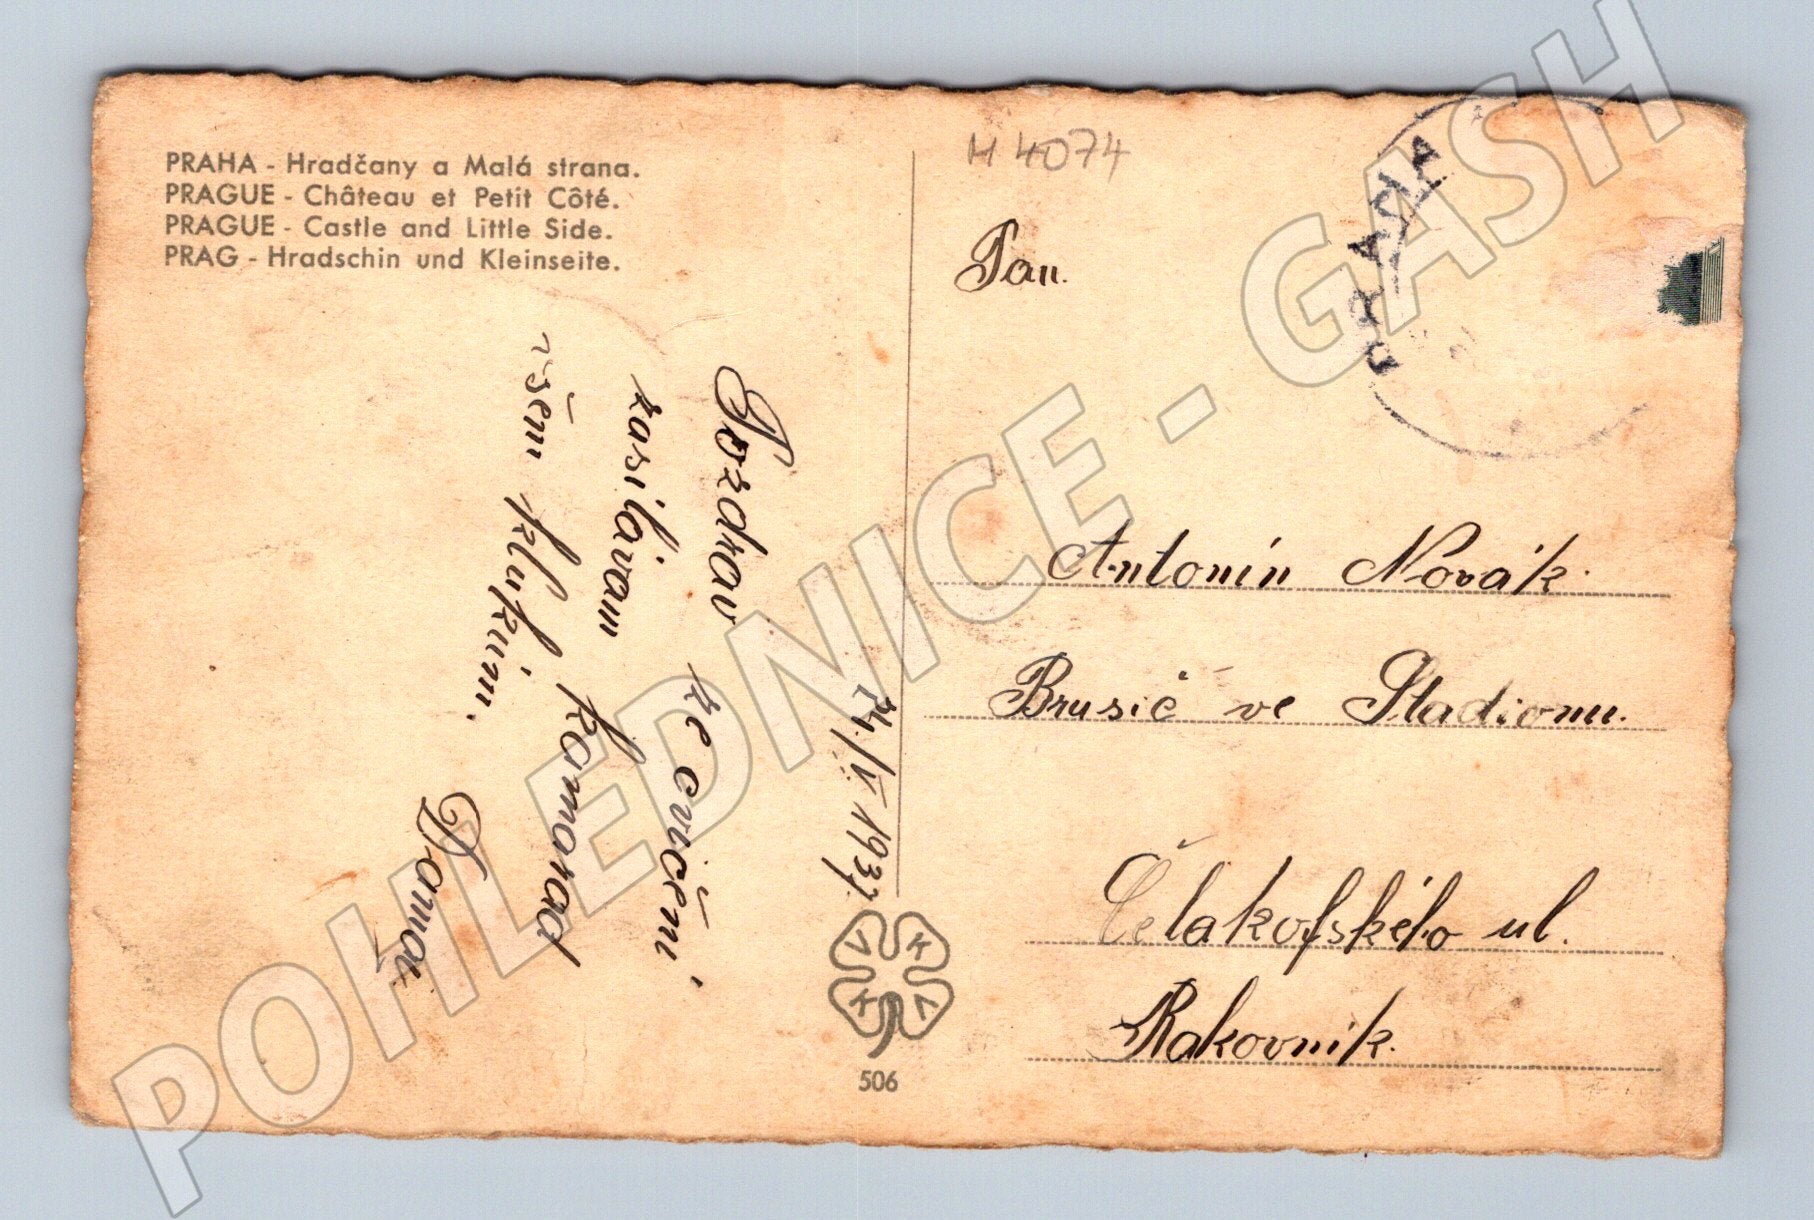 PRAHA - Hradčany a Malá strana.
PRAGUE - Château et Petit Côté.
PRAGUE - Castle and Little Side.
PRAG - Hradschin und Kleinseite.
Pozdrav ze cvičení
zasilávam kamarad
všem klukům.
24/V 1937
V K V K
506
H 4074
Pan.
Antonín Novák.
Brusič ve Stadionu.
Čelakofského ul.
Rakovník.
PRAHA
POHLEDNICE - GASH